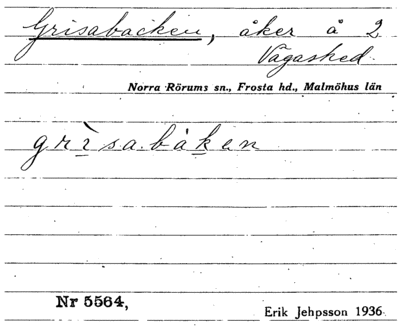 Grisabacken, åker å 2
Vägasked.
Norra Rörums sn., Frosta hd., Malmöhus län
grìsabàken
Nr 5564,
Erik Jehpsson 1936